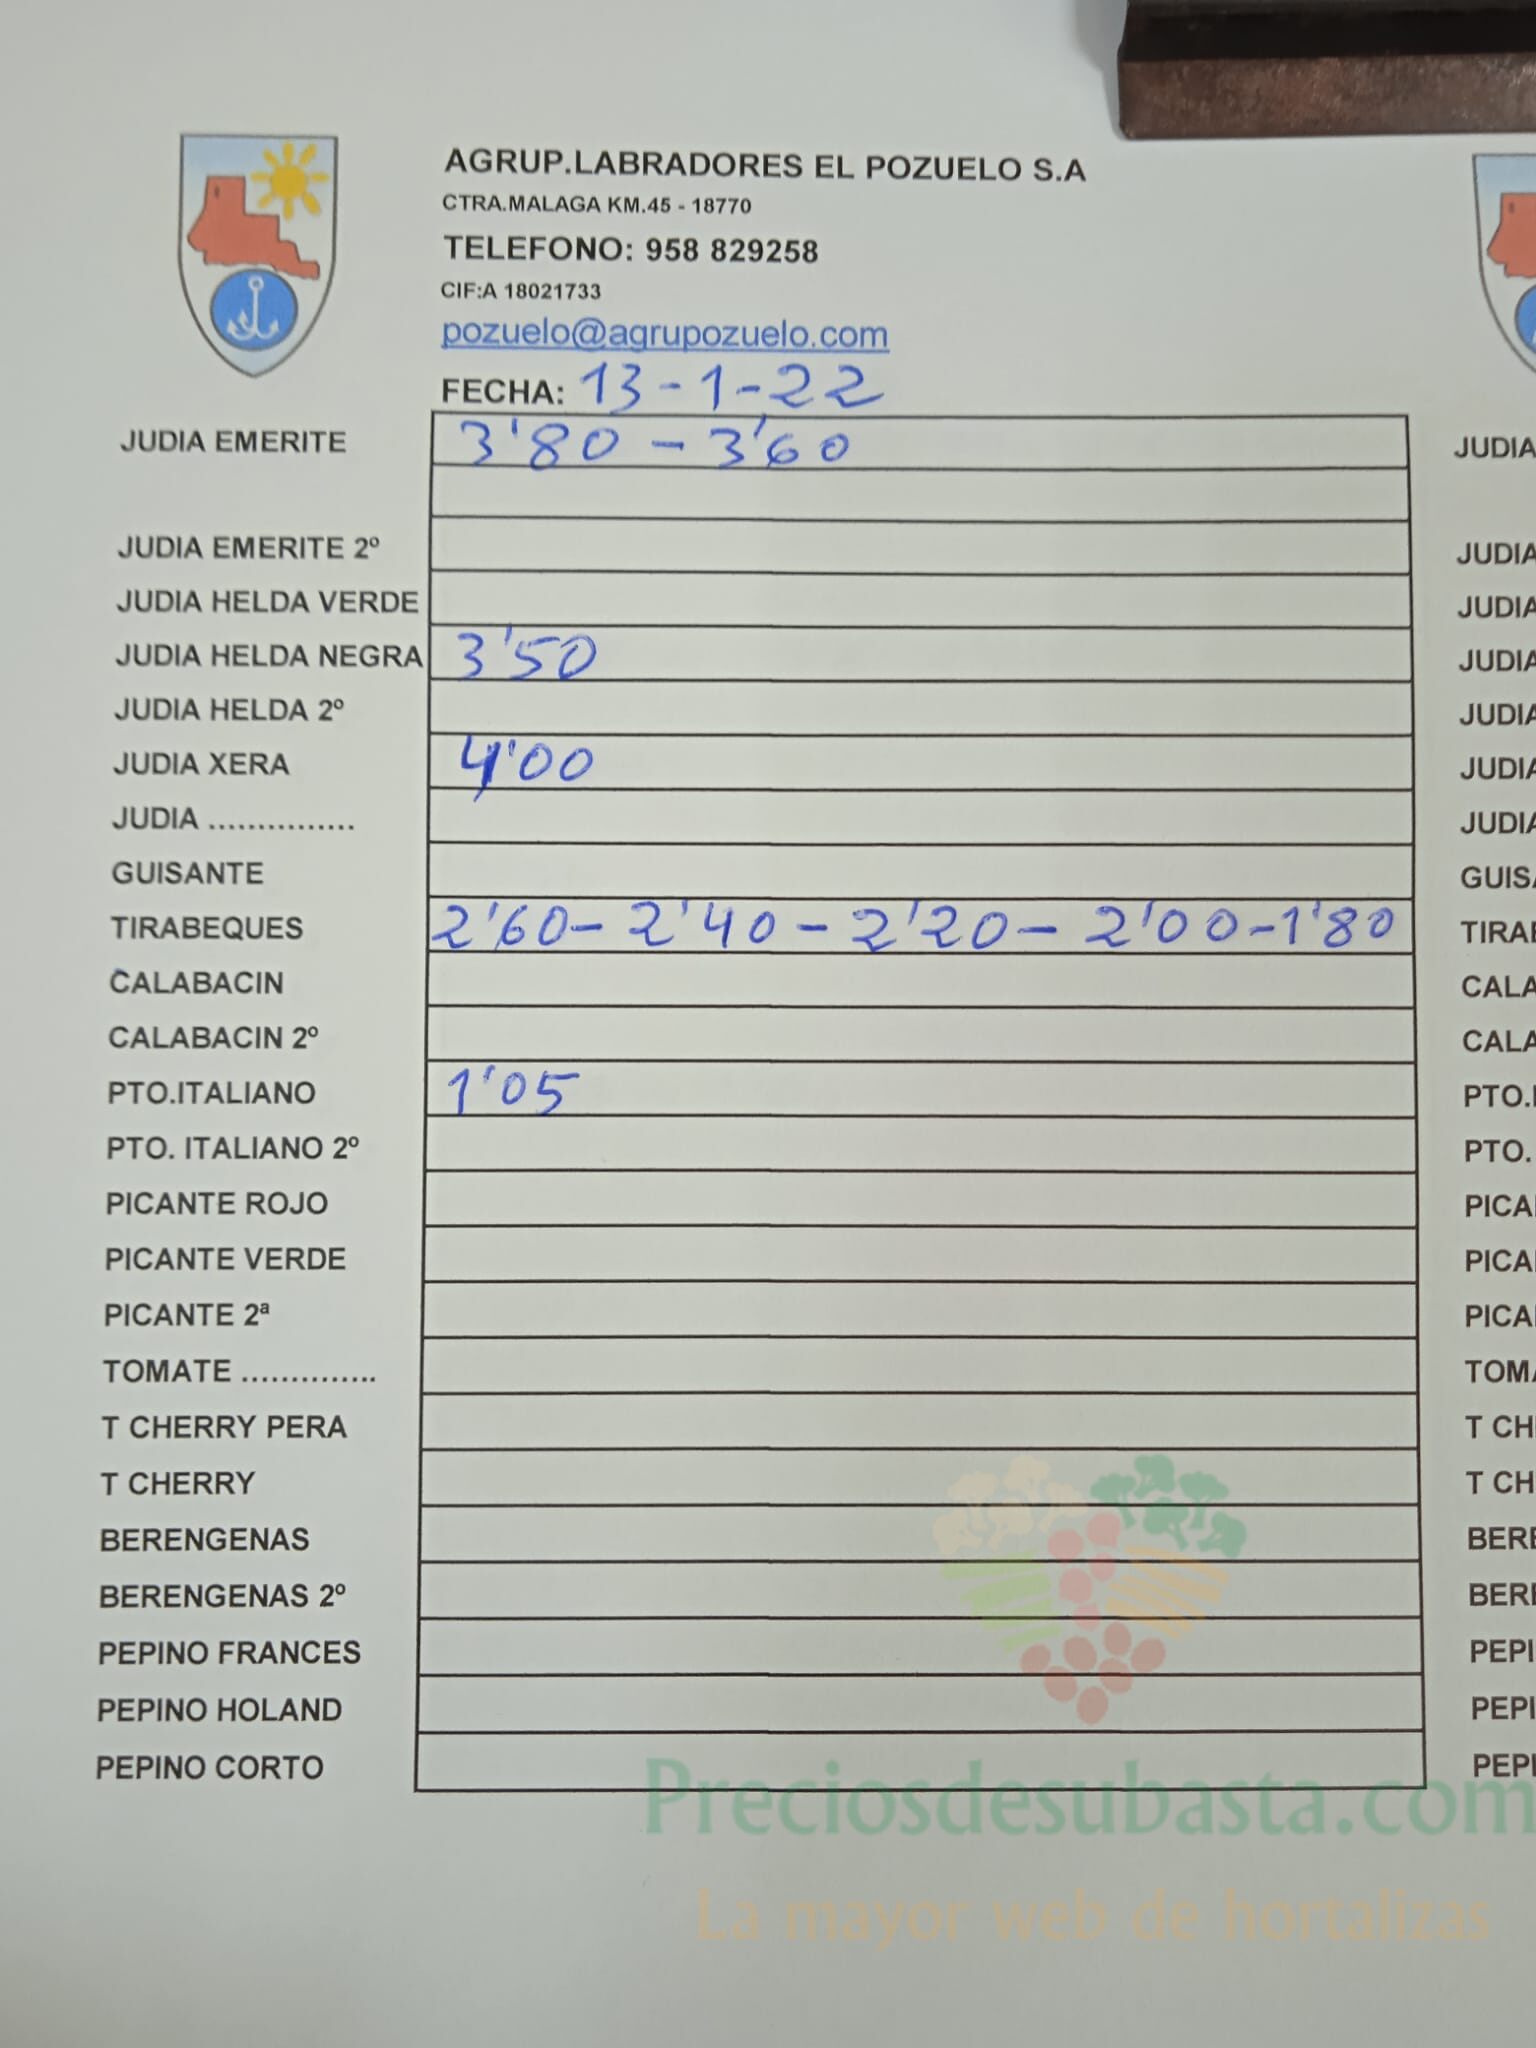 AGRUP.LABRADORES EL POZUELO S.A
CTRA.MALAGA KM.45 - 18770
TELEFONO: 958 829258
CIF:A 18021733
pozuelo@agrupozuelo.com
FECHA: 13-1-22
JUDIA EMERITE 3'80 - 3'60
JUDIA EMERITE 2º
JUDIA HELDA VERDE
JUDIA HELDA NEGRA 3'50
JUDIA HELDA 2º
JUDIA XERA 4'00
JUDIA ...............
GUISANTE
TIRABEQUES 2'60- 2'40 - 2'20 - 2'00-1'80
CALABACIN
CALABACIN 2º
PTO.ITALIANO 1'05
PTO. ITALIANO 2º
PICANTE ROJO
PICANTE VERDE
PICANTE 2ª
TOMATE ..............
T CHERRY PERA
T CHERRY
BERENGENAS
BERENGENAS 2º
PEPINO FRANCES
PEPINO HOLAND
PEPINO CORTO
JUDIA
JUDIA
JUDIA
JUDIA
JUDIA
JUDIA
JUDIA
GUISA
TIRAB
CALA
CALA
PTO.
PTO.
PICA
PICA
PICA
TOMA
T CH
T CH
BERE
BERE
PEPI
PEPI
PEPI
Preciosdesubasta.com
La mayor web de hortalizas